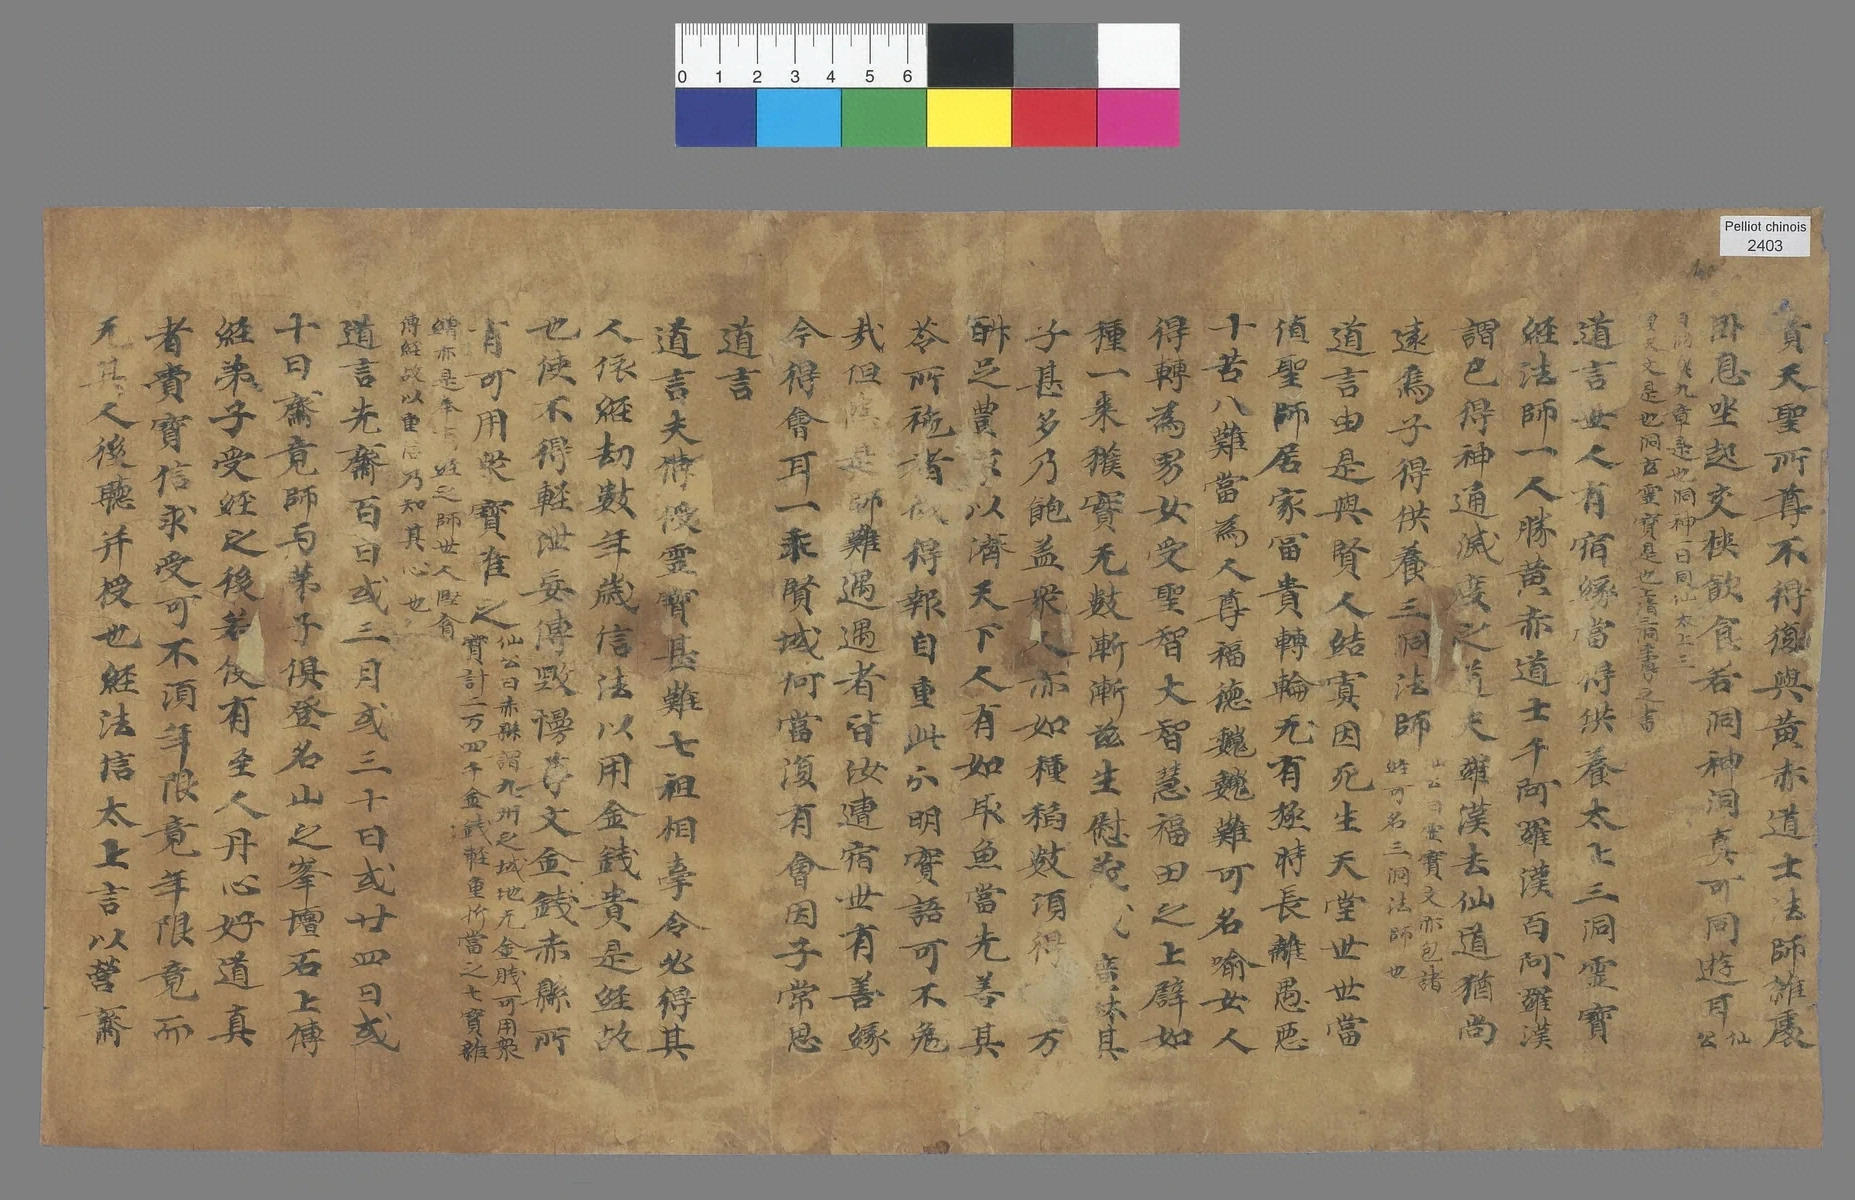 Pelliot chinois
2403
0 1 2 3 4 5 6
貴天聖所尊不得復與黃赤道士法師雜處
卧息坐起交使飲食若洞神洞真可同遊耳仙公
曰洞九章是也洞神曰同仙太上三
皇天文是也洞玄靈寶是也上清三洞之書
道言世人有宿緣當得供養太上三洞靈寶
經法師一人勝黃赤道士千阿羅漢百阿羅漢
謂已得神通滅度之道夫羅漢去仙道猶尚
遠為子得供養三洞法師仙公曰靈寶文亦包諸
經可名三洞法師也
道言由是與賢人結寳因死生天堂世世當
值聖師居家富貴轉輪无有極時長離愚惡
十苦八難當為人尊福德巍巍難可名喻女人
得轉為男女受聖智大智慧福田之上辟如
種一来獲寳无數漸漸茲生 其
子甚多乃飽益衆人亦如種稻數湏得 万
斛足農 以濟天下人有如取魚當先善其
苓所 者 得報自重此分明寳語可不勉
哉但 是師難遇遇者皆汝遭宿世有善緣
今得會耳一乖賢域何當復有會因子常思
道言
道言夫 授靈寳甚難七祖相牽令必得其
人依經劫數年歲信法以用金錢貴是經故
也使不得輕泄妄傳毀慢 文金錢赤縣所
有可用 寳准之仙公曰赤縣謂九州之城地无金賎可用衆
寳計二万四千金錢輕重所當之七寳雖
 亦是奉 經之師世人慳貪
傳經故以重信乃知其心也
道言先齋百日或三月或三十日或廿四日或
十日齋竟師与弟子俱登名山之峯壇石上傳
經弟子受經之後若後有至人丹心好道真
者賷寳信求受可不湏年限竟年限竟而
无其人後聽并授也經法信太上言以營齋